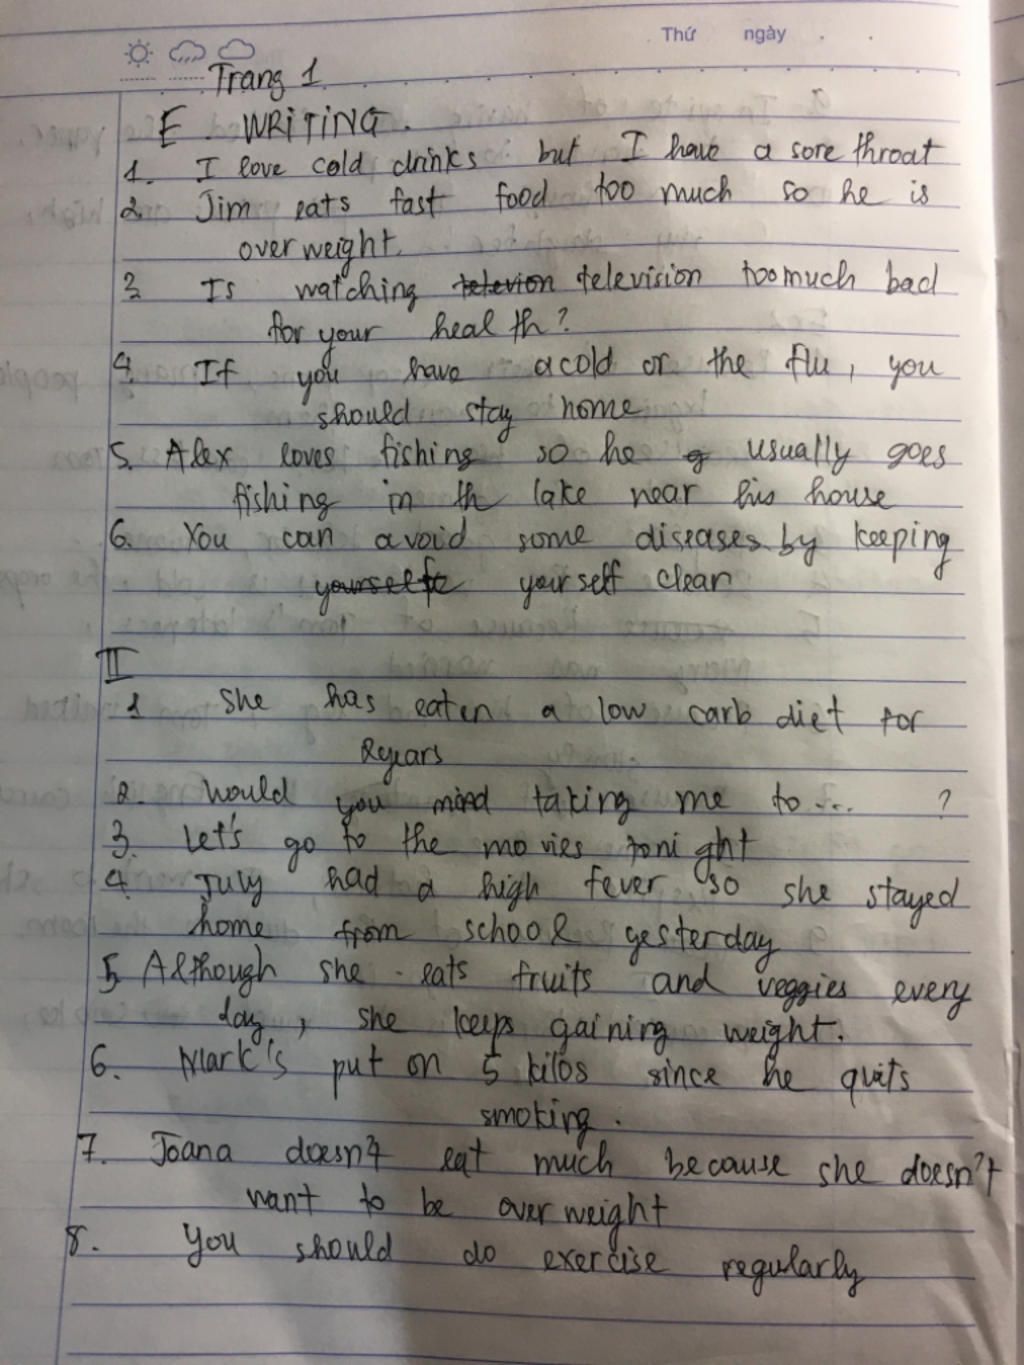 Thứ ngày . .
Trang 1
E. WRITING.
1. I love cold drinks but I have a sore throat
2. Jim eats fast food too much so he is
overweight.
3 Is watching television too much bad
for your health?
4. If you have a cold or the flu, you
should stay home
5. Alex loves fishing so he usually goes
fishing in th lake near his house
6. You can avoid some diseases by keeping
yourself clean
II
1 She has eaten a low carb diet for
2years
2. Would you mind taking me to ... ?
3. Let's go to the movies tonight
4. July had a high fever so she stayed
home from school yesterday
5. Although she eats fruits and veggies every
day, she keeps gaining weight.
6. Mark's put on 5 kilos since he quits
smoking.
7. Joana doesn't eat much because she doesn't
want to be overweight
8. You should do exercise regularly